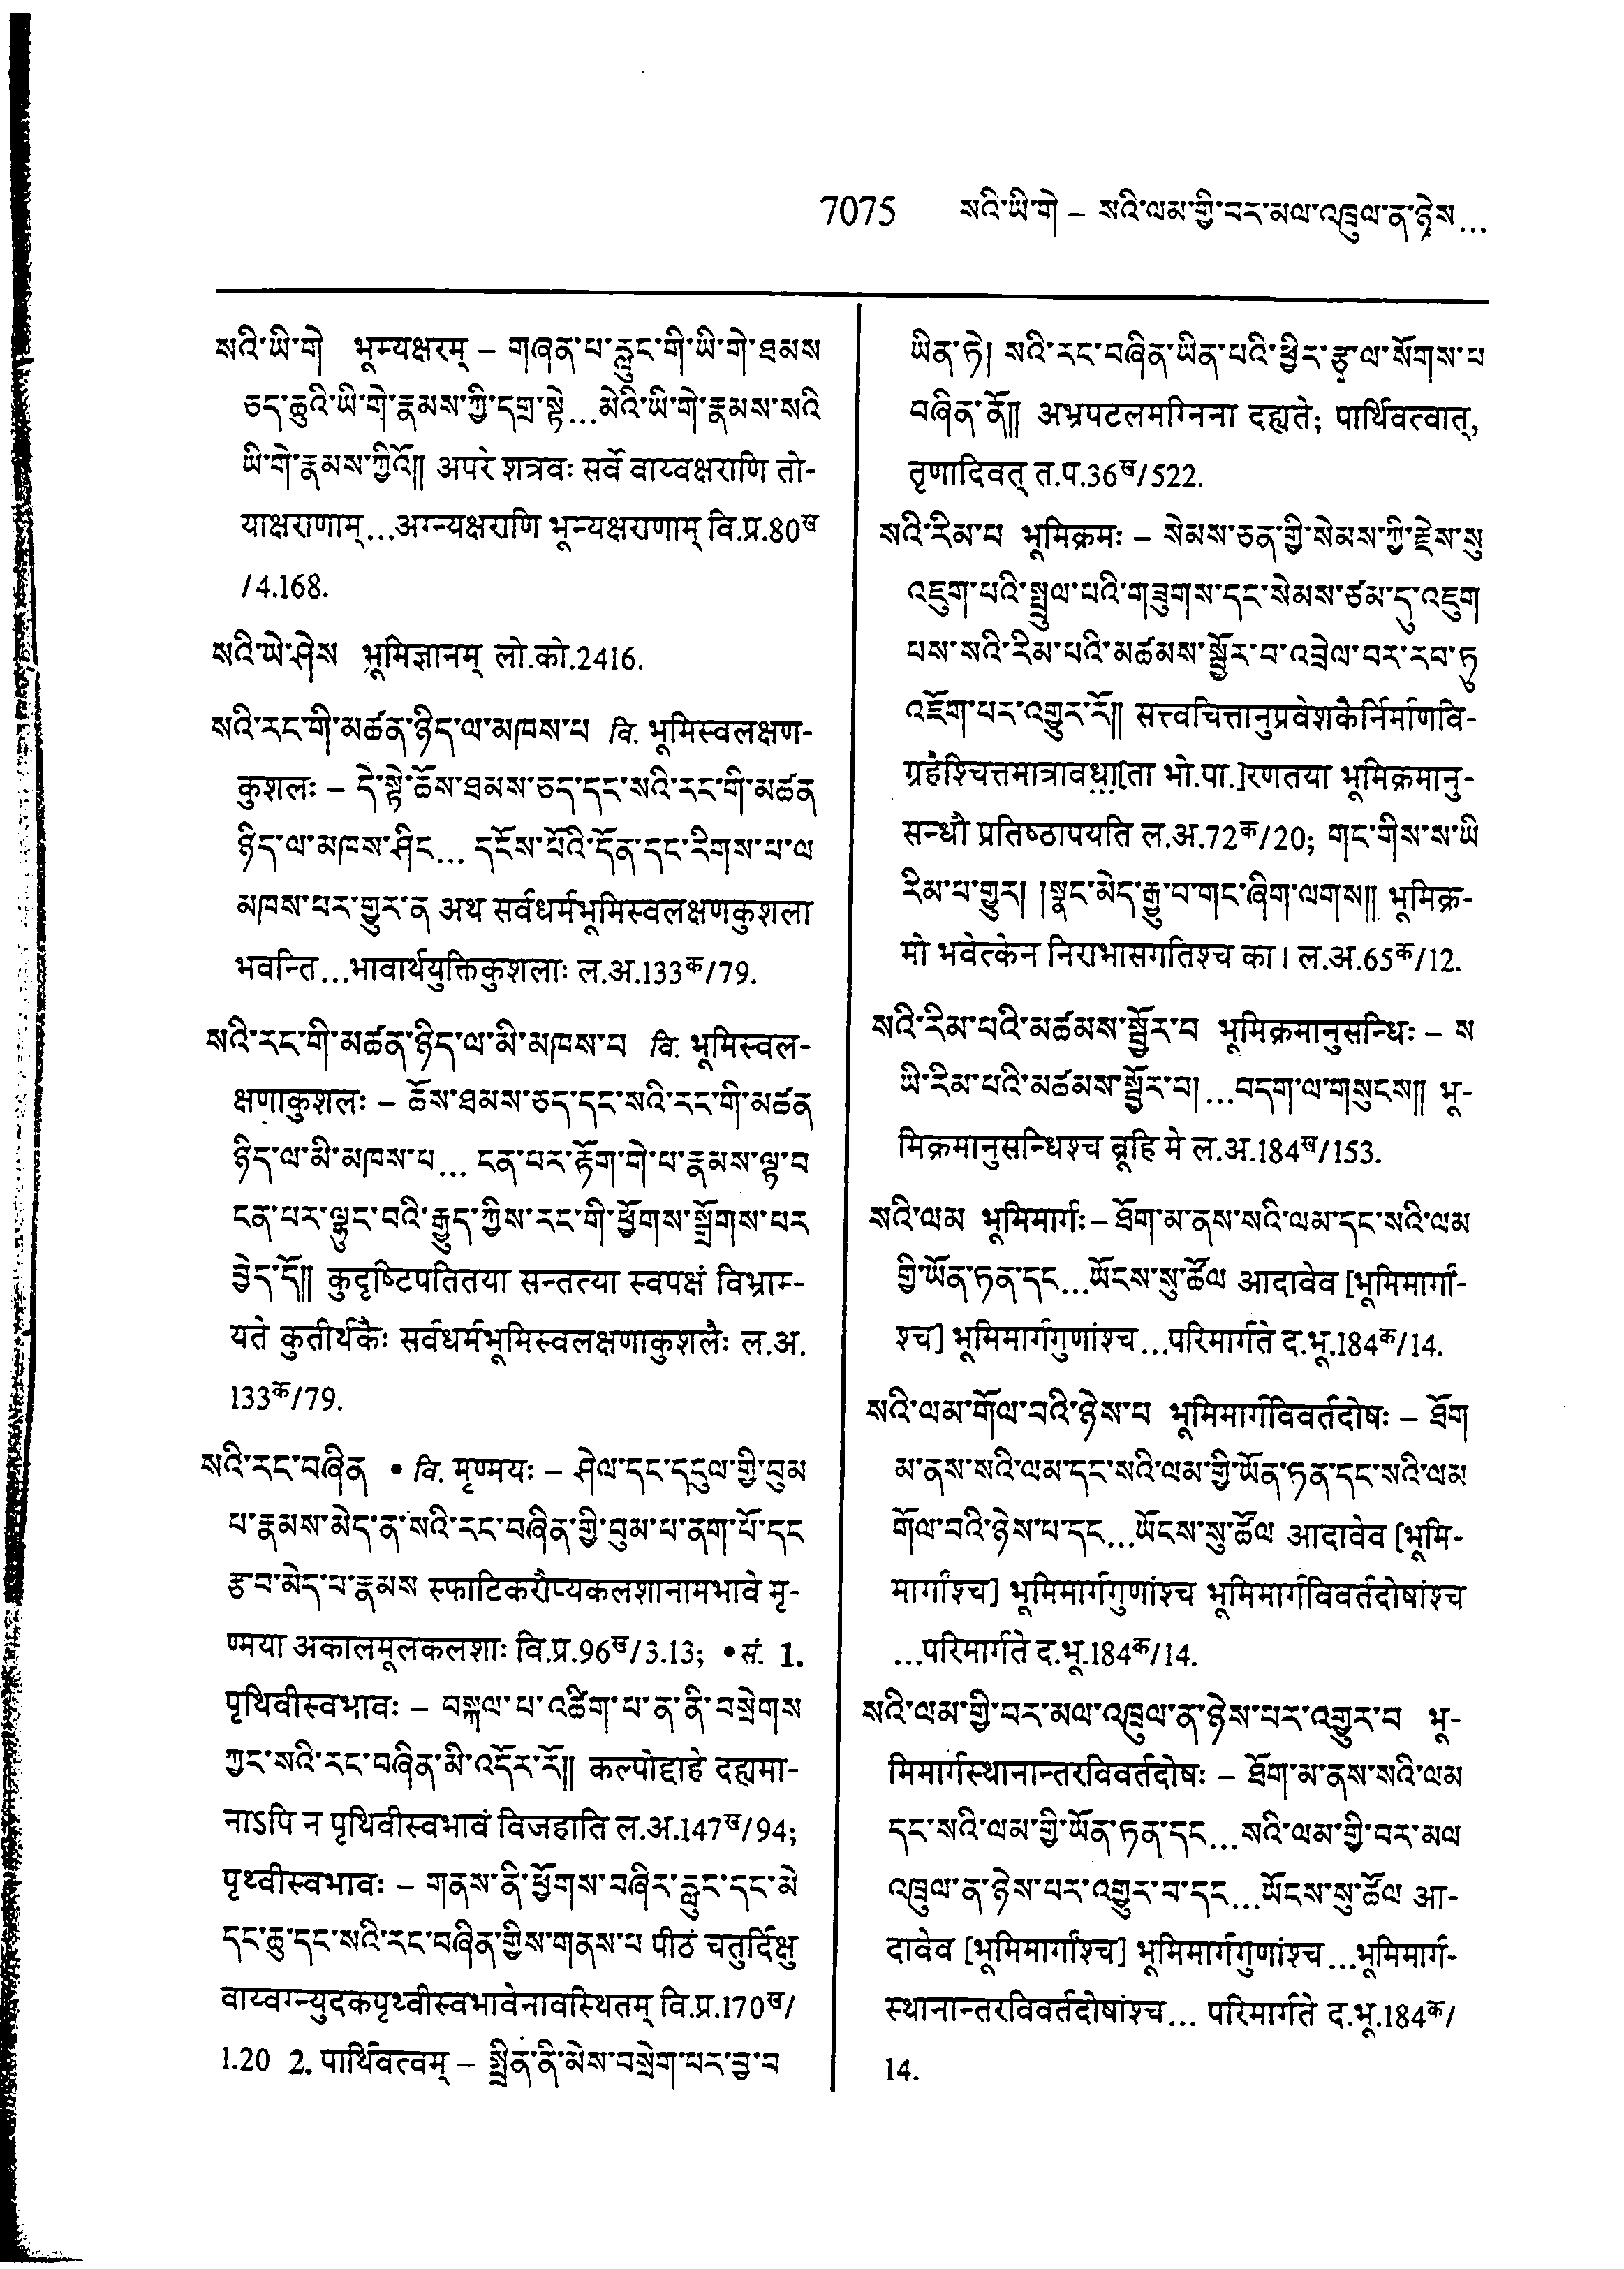 7075 སའི་ཡི་གེ – སའི་ལམ་གྱི་བར་མལ་འཁྲུལ་ན་ཉེས...
སའི་ཡི་གེ भूम्यक्षरम् – གཞན་པ་རླུང་གི་ཡི་གེ་ཐམས
ཅད་ཆུའི་ཡི་གེ་རྣམས་ཀྱི་དགྲ་སྟེ...མེའི་ཡི་གེ་རྣམས་སའི
ཡི་གེ་རྣམས་ཀྱིའོ༎ अपरे शत्रवः सर्वे वाय्वक्षराणि तो-
याक्षराणाम्...अग्न्यक्षराणि भूम्यक्षराणाम् वि.प्र.80ख
/4.168.
སའི་ཡེ་ཤེས भूमिज्ञानम् लो.को.2416.
སའི་རང་གི་མཚན་ཉིད་ལ་མཁས་པ वि. भूमिस्वलक्षण-
कुशलः – དེ་སྟེ་ཆོས་ཐམས་ཅད་དང་སའི་རང་གི་མཚན
ཉིད་ལ་མཁས་ཤིང... དངོས་པོའི་དོན་དང་རིགས་པ་ལ
མཁས་པར་གྱུར་ན अथ सर्वधर्मभूमिस्वलक्षणकुशला
भवन्ति...भावार्थयुक्तिकुशलाः ल.अ.133क/79.
སའི་རང་གི་མཚན་ཉིད་ལ་མི་མཁས་པ वि. भूमिस्वल-
क्षणाकुशलः – ཆོས་ཐམས་ཅད་དང་སའི་རང་གི་མཚན
ཉིད་ལ་མི་མཁས་པ... ངན་པར་རྟོག་གེ་པ་རྣམས་ལྟ་བ
ངན་པར་ལྷུང་བའི་རྒྱུད་ཀྱིས་རང་གི་ཕྱོགས་སྒྲོགས་པར
བྱེད་དོ༎ कुदृष्टिपतितया सन्तत्या स्वपक्षं विभ्राम्-
यते कुतीर्थकैः सर्वधर्मभूमिस्वलक्षणाकुशलैः ल.अ.
133क/79.
སའི་རང་བཞིན • वि. मृण्मयः – ཤེལ་དང་དངུལ་གྱི་བུམ
པ་རྣམས་མེད་ན་སའི་རང་བཞིན་གྱི་བུམ་པ་ནག་པོ་དང
རྩ་བ་མེད་པ་རྣམས स्फाटिकरौप्यकलशानामभावे मृ-
ण्मया अकालमूलकलशाः वि.प्र.96ख/3.13; • सं. 1.
पृथिवीस्वभावः – བསྐལ་པ་འཚིག་པ་ན་ནི་བསྲེགས
ཀྱང་སའི་རང་བཞིན་མི་འདོར་རོ༎ कल्पोद्दाहे दह्यमा-
नाऽपि न पृथिवीस्वभावं विजहाति ल.अ.147ख/94;
पृथ्वीस्वभावः – གནས་ནི་ཕྱོགས་བཞིར་རླུང་དང་མེ
དང་ཆུ་དང་སའི་རང་བཞིན་གྱིས་གནས་པ पीठं चतुर्दिक्षु
वाय्वग्न्युदकपृथ्वीस्वभावेनावस्थितम् वि.प्र.170ख/
1.20 2. पार्थिवत्वम् – སྤྲིན་ནི་མེས་བསྲེག་པར་བྱ་བ
ཡིན་ཏེ། སའི་རང་བཞིན་ཡིན་པའི་ཕྱིར་རྩྭ་ལ་སོགས་པ
བཞིན་ནོ༎ अभ्रपटलमग्निना दह्यते; पार्थिवत्वात्,
तृणादिवत् त.प.36ख/522.
སའི་རིམ་པ भूमिक्रमः – སེམས་ཅན་གྱི་སེམས་ཀྱི་རྗེས་སུ
འཇུག་པའི་སྤྲུལ་པའི་གཟུགས་དང་སེམས་ཙམ་དུ་འཇུག
པས་སའི་རིམ་པའི་མཚམས་སྦྱོར་བ་འབྲེལ་བར་རབ་ཏུ
འཇོག་པར་འགྱུར་རོ༎ सत्त्वचित्तानुप्रवेशकैर्निर्माणवि-
ग्रहैश्चित्तमात्रावधा[ता भो.पा.]रणतया भूमिक्रमानु-
सन्धौ प्रतिष्ठापयति ल.अ.72क/20; གང་གིས་ས་ཡི
རིམ་པ་གྱུར། །སྣང་མེད་རྒྱུ་བ་གང་ཞིག་ལགས༎ भूमिक्र-
मो भवेत्केन निराभासगतिश्च का। ल.अ.65क/12.
སའི་རིམ་པའི་མཚམས་སྦྱོར་བ भूमिक्रमानुसन्धिः – ས
ཡི་རིམ་པའི་མཚམས་སྦྱོར་བ། ...བདག་ལ་གསུངས༎ भू-
मिक्रमानुसन्धिश्च ब्रूहि मे ल.अ.184ख/153.
སའི་ལམ भूमिमार्गः – ཐོག་མ་ནས་སའི་ལམ་དང་སའི་ལམ
གྱི་ཡོན་ཏན་དང...ཡོངས་སུ་ཚོལ आदावेव [भूमिमार्गां-
श्च] भूमिमार्गगुणांश्च...परिमार्गते द.भू.184क/14.
སའི་ལམ་གོལ་བའི་ཉེས་པ भूमिमार्गविवर्तदोषः – ཐོག
མ་ནས་སའི་ལམ་དང་སའི་ལམ་གྱི་ཡོན་ཏན་དང་སའི་ལམ
གོལ་བའི་ཉེས་པ་དང...ཡོངས་སུ་ཚོལ आदावेव [भूमि-
मार्गांश्च] भूमिमार्गगुणांश्च भूमिमार्गविवर्तदोषांश्च
...परिमार्गते द.भू.184क/14.
སའི་ལམ་གྱི་བར་མལ་འཁྲུལ་ན་ཉེས་པར་འགྱུར་བ भू-
मिमार्गस्थानान्तरविवर्तदोषः – ཐོག་མ་ནས་སའི་ལམ
དང་སའི་ལམ་གྱི་ཡོན་ཏན་དང...སའི་ལམ་གྱི་བར་མལ
འཁྲུལ་ན་ཉེས་པར་འགྱུར་བ་དང...ཡོངས་སུ་ཚོལ आ-
दावेव [भूमिमार्गांश्च] भूमिमार्गगुणांश्च...भूमिमार्ग-
स्थानान्तरविवर्तदोषांश्च... परिमार्गते द.भू.184क/
14.